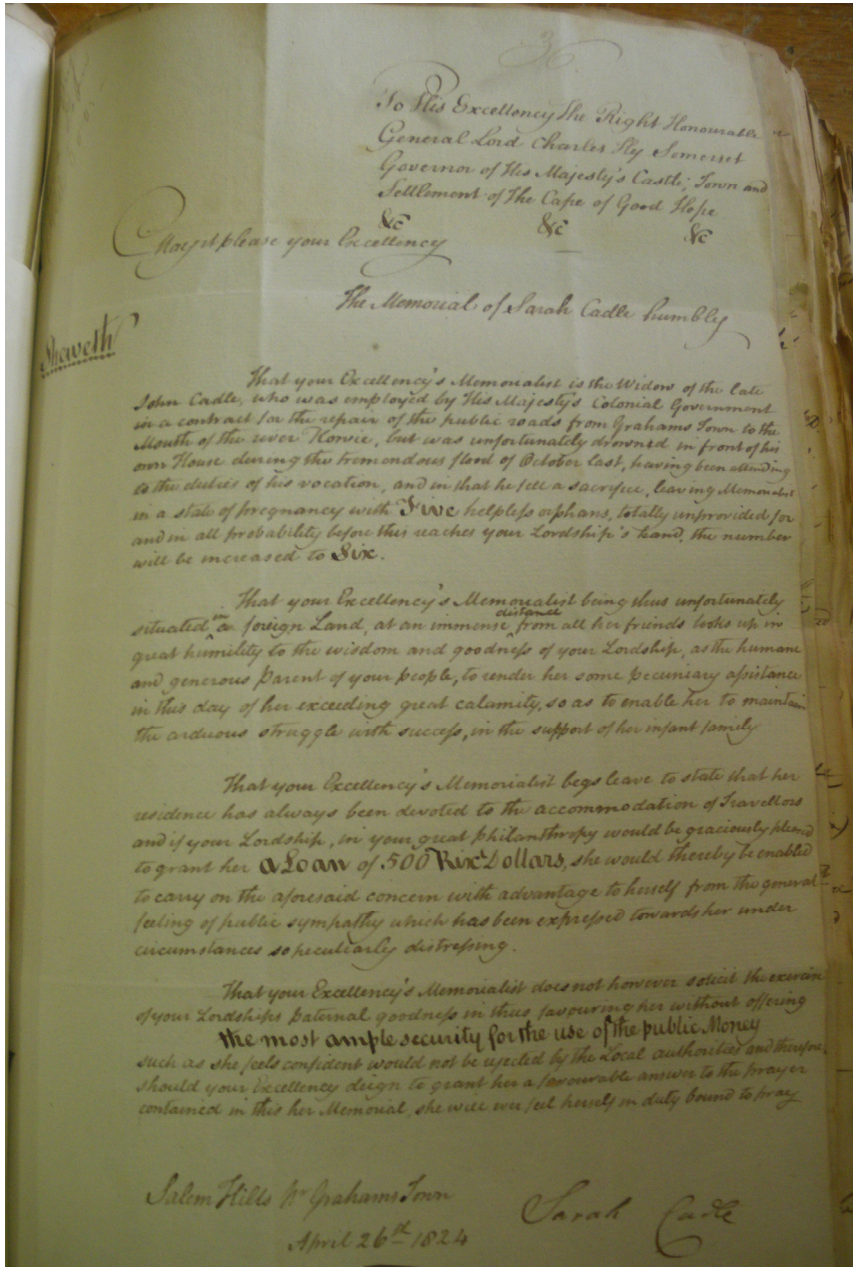 To His Excellency The Right Honourable
General Lord Charles Hy Somerset
Governor of His Majesty's Castle, Town and
Settlement of The Cape of Good Hope
&c &c &c
May it please your Excellency
The Memorial of Sarah Cadle humbly
Sheweth
That your Excellency's Memorialist is the Widow of the late
John Cadle, who was employed by His Majesty's Colonial Government
in a contract for the repair of the public roads from Grahams Town to the
Mouth of the river Kowie, but was unfortunately drowned in front of his
own House during the tremendous flood of October last, having been attending
to the duties of his vocation, and in that he fell a sacrifice, leaving Memorialist
in a state of pregnancy with Five helpless orphans, totally unprovided for
and in all probability before this reaches your Lordship's hand, the number
will be increased to Six.
That your Excellency's Memorialist being thus unfortunately
situated in a foreign Land, at an immense distance from all her friends looks up in
great humility to the wisdom and goodness of your Lordship, as the humane
and generous parent of your people, to render her some pecuniary assistance
in this day of her exceeding great calamity, so as to enable her to maintain
the arduous struggle with success, in the support of her infant family
That your Excellency's Memorialist begs leave to state that her
residence has always been devoted to the accommodation of Travellors
and if your Lordship, in your great philanthropy would be graciously pleased
to grant her a Loan of 500 Rix Dollars, she would thereby be enabled
to carry on the aforesaid concern with advantage to herself from the general
feeling of public sympathy which has been expressed towards her under
circumstances so peculiarly distressing.
That your Excellency's Memorialist does not however solicit the exercise
of your Lordships paternal goodness in thus favouring her without offering
the most ample security for the use of the public Money
such as she feels confident would not be rejected by the Local authorities and therefore
should your Excellency deign to grant her a favourable answer to the prayer
contained in this her Memorial, she will ever feel herself in duty bound to pray
Salem Hills Nr Grahams Town
April 26th 1824
Sarah Cadle